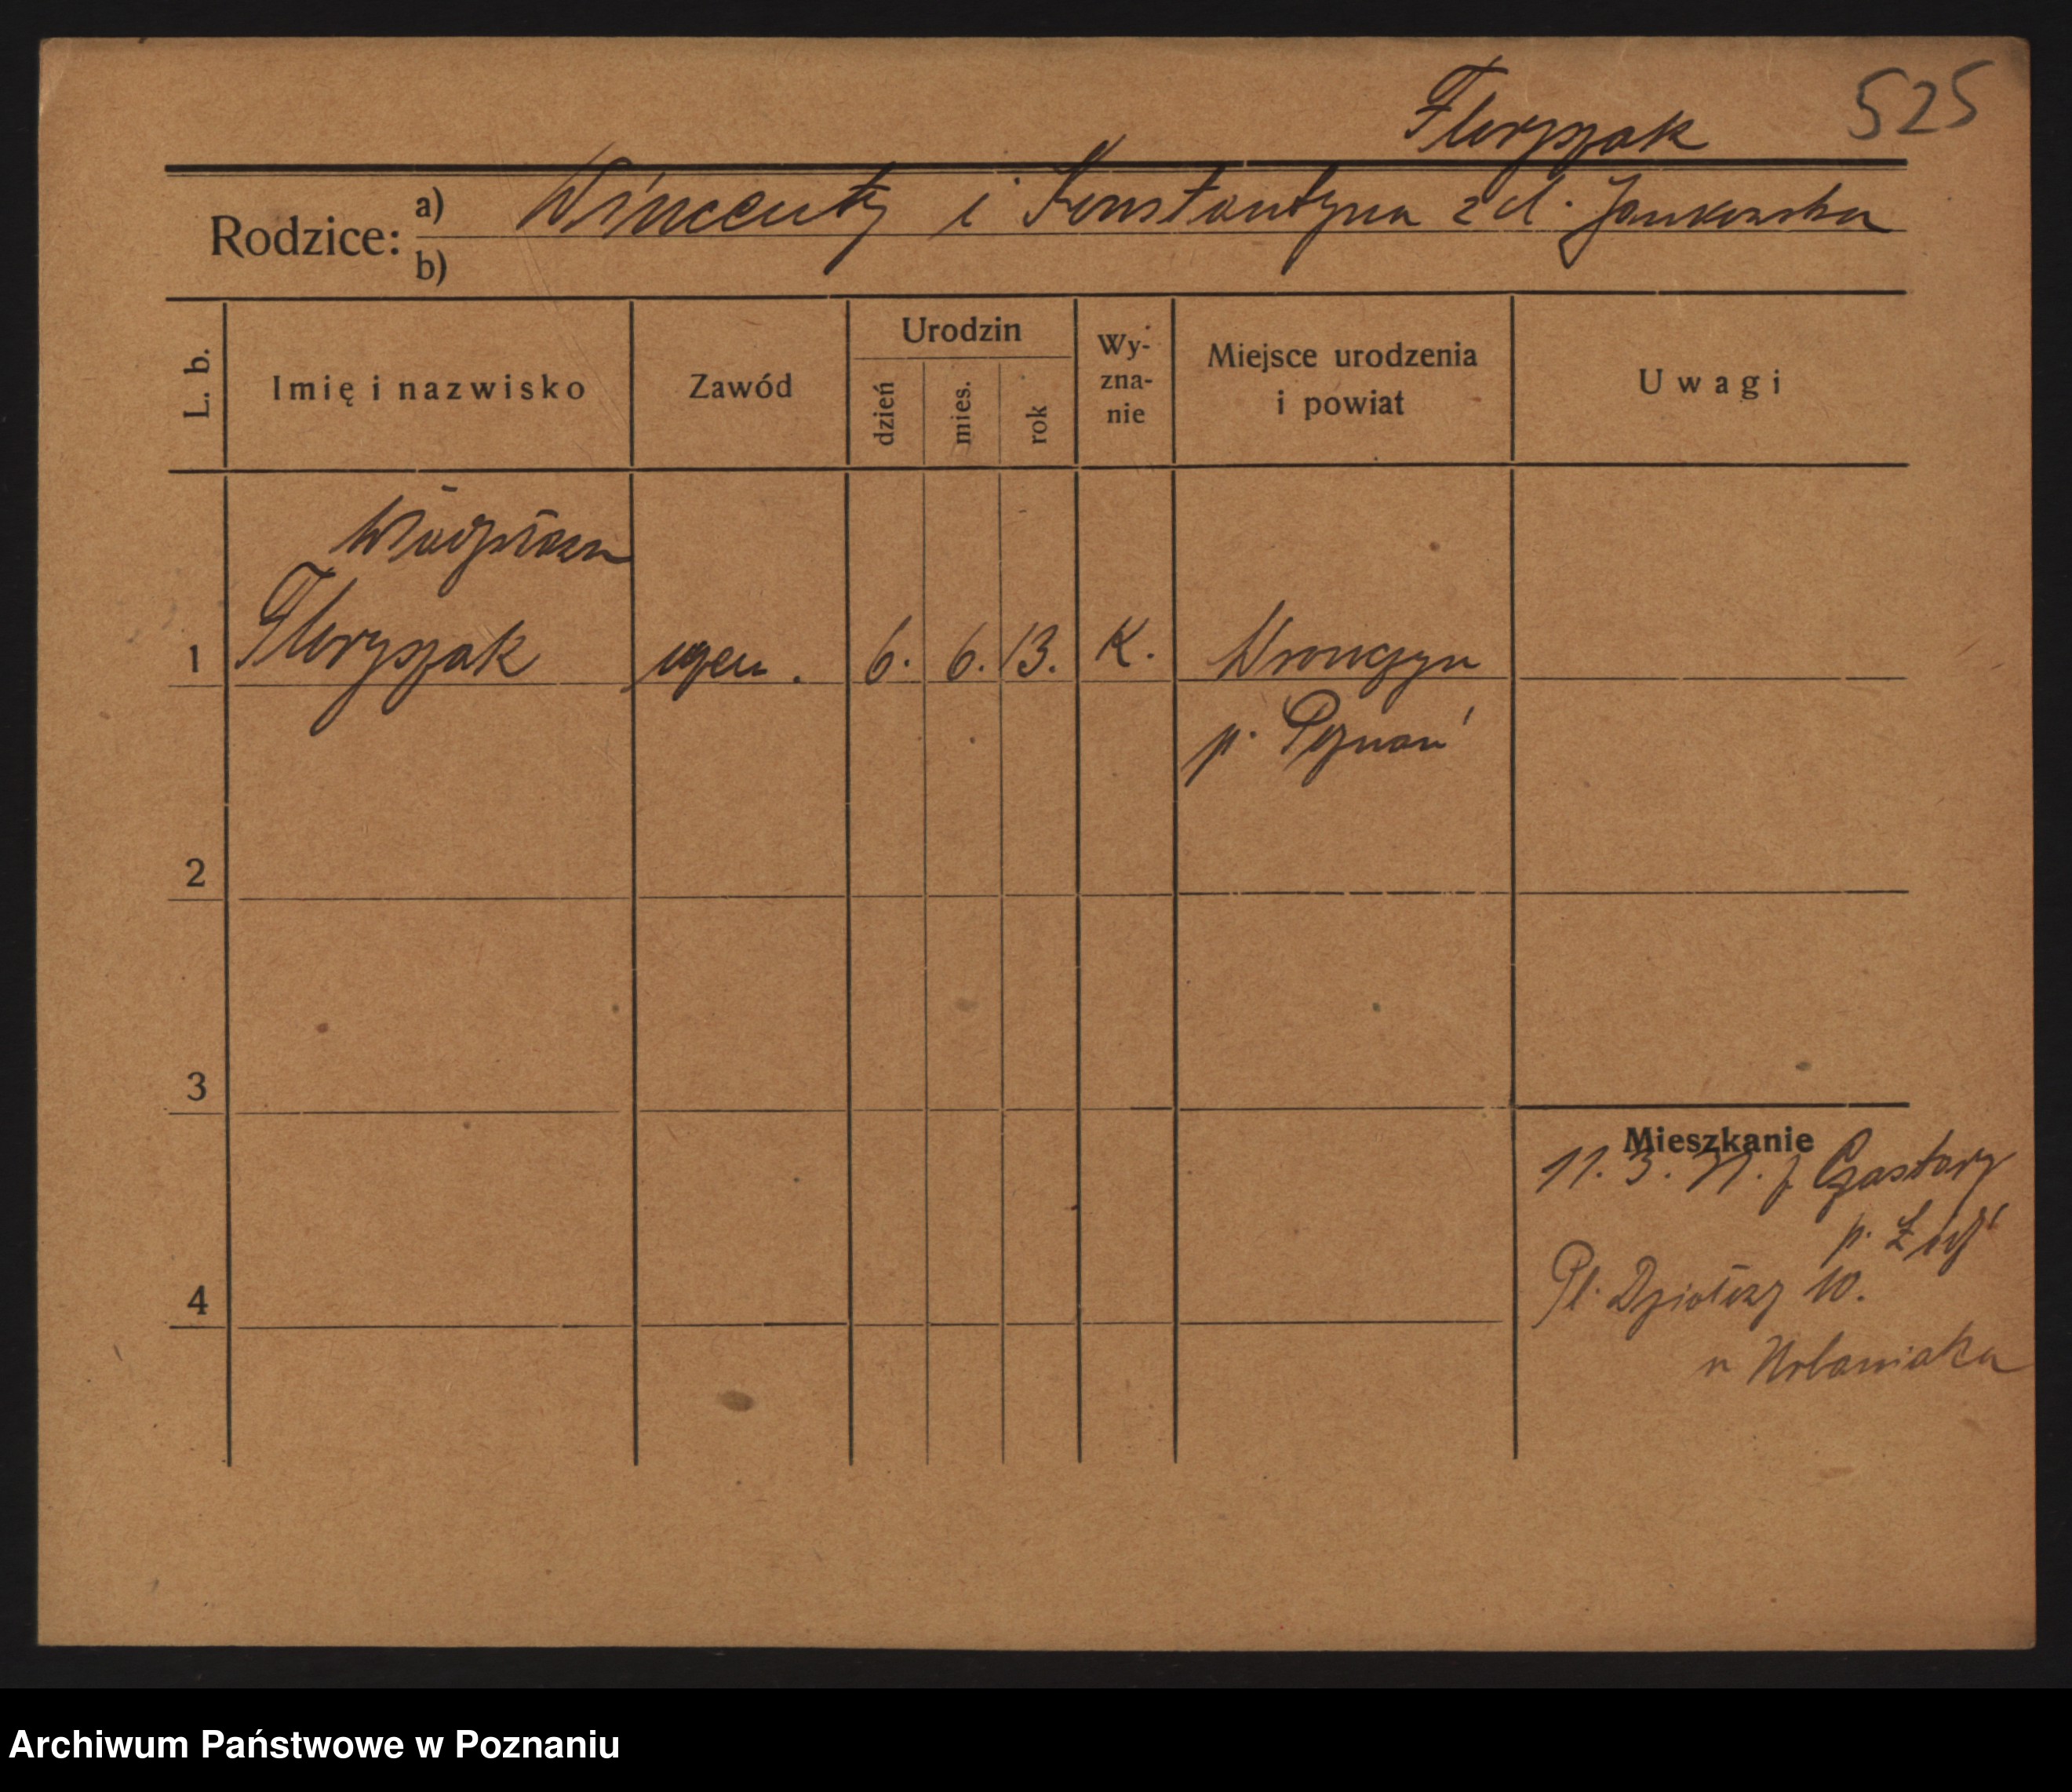 Floryszak 525
Rodzice: a) Wincenty i Konstantyna z d. Jankowska
b)
L. b. Imię i nazwisko Zawód Urodzin dzień mies. rok Wy-zna-nie Miejsce urodzenia i powiat Uwagi
1 Floryszak uczeń. 6. 6. 13. K. Wronczyn
p. Poznań
2
3
Mieszkanie
11. 3. 31. z Czastary
p. Łódź
4 Pl. Działowy 10.
u Urbaniaka
Archiwum Państwowe w Poznaniu